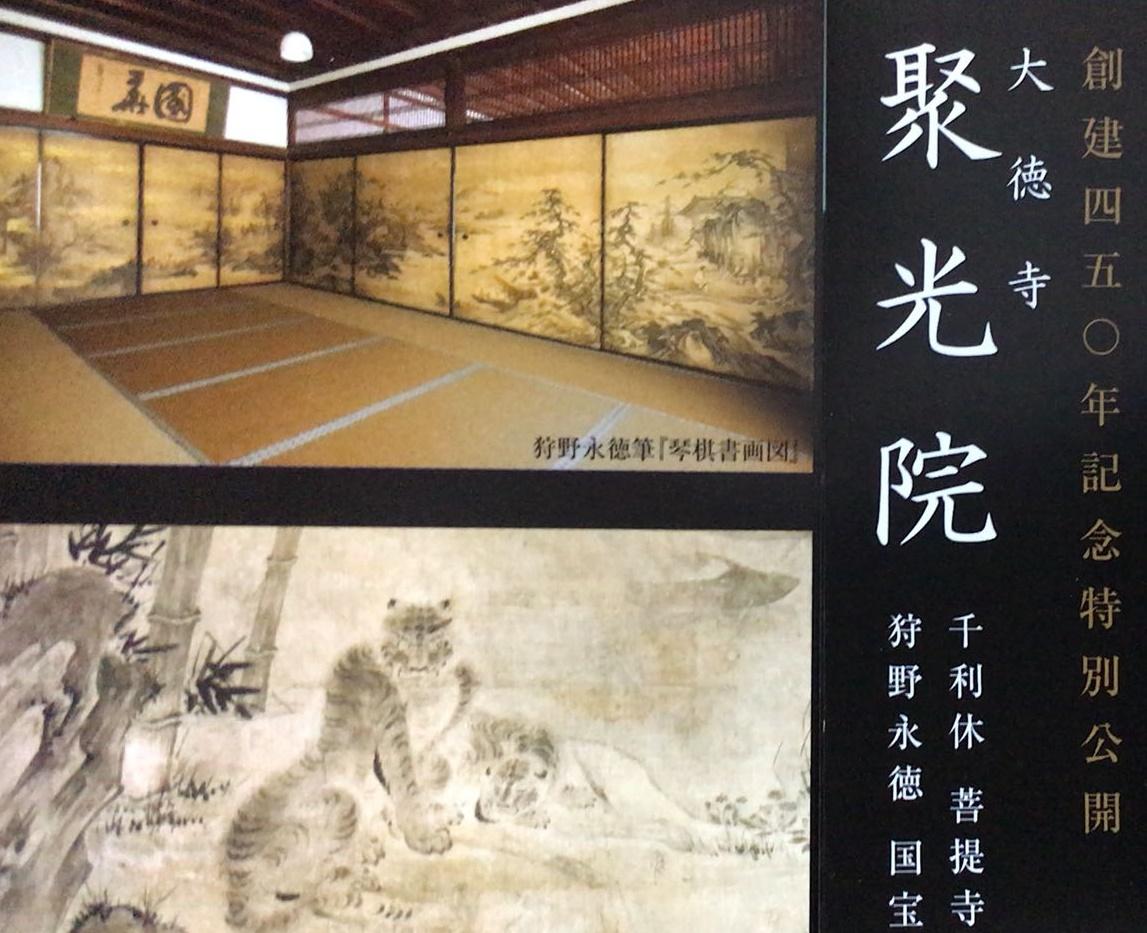 創建四五〇年記念特別公開
大徳寺
聚光院
千利休 菩提寺
狩野永徳 国宝
狩野永徳筆『琴棋書画図』